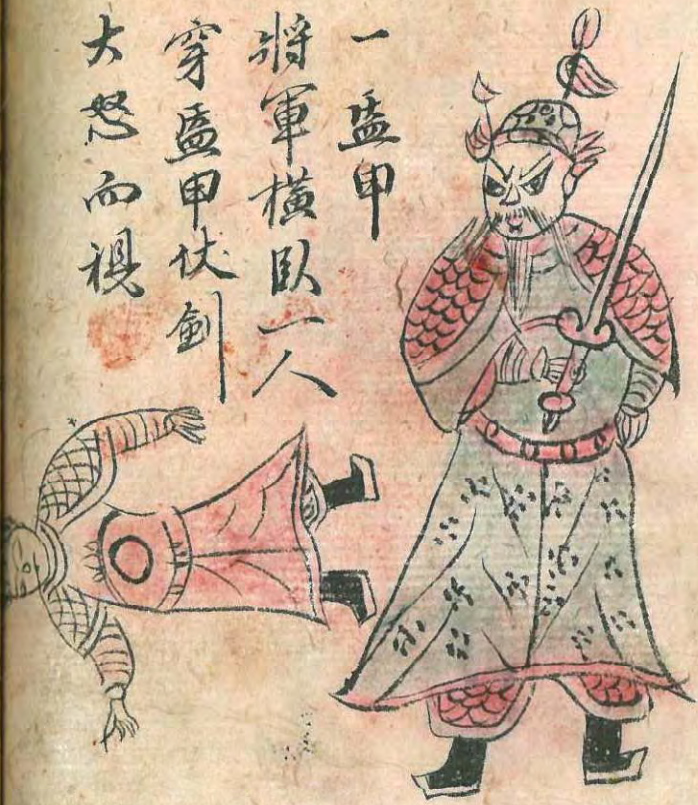 一盔甲
將軍橫臥一人
穿盔甲伏劍
大怒而視